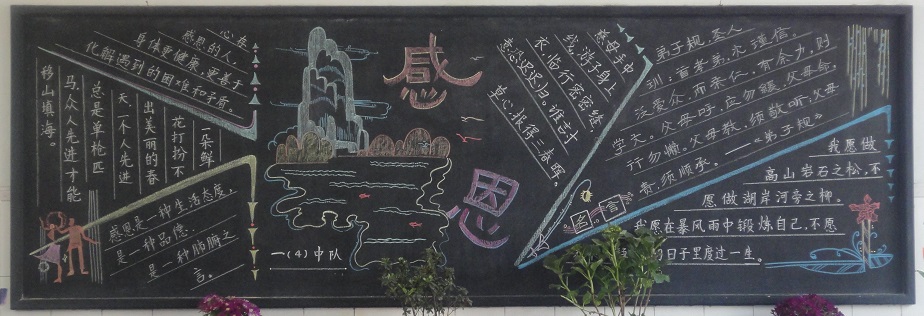 心存
感恩的人,
身体更健康,更善于
化解遇到的困难和矛盾。
一朵鲜
花打扮不
出美丽的春
天,一个人先进
总是单枪匹
马,众人先进才能
移山填海。
感恩是一种生活态度,
是一种品德,
是一种肺腑之
言。
一(4)中队
感
恩
慈母手中
线,游子身上
衣。临行密密缝,
意恐迟迟归。谁言寸
草心,报得三春晖。
弟子规,圣人
训:首孝弟,次谨信。
泛爱众,而亲仁。有余力,则
学文。父母呼,应勿缓,父母命,
行勿懒。父母教,须敬听,父母
责,须顺承。——《弟子规》
我愿做
高山岩石之松,不
愿做湖岸河旁之柳。
我愿在暴风雨中锻炼自己,不愿
日子里度过一生。